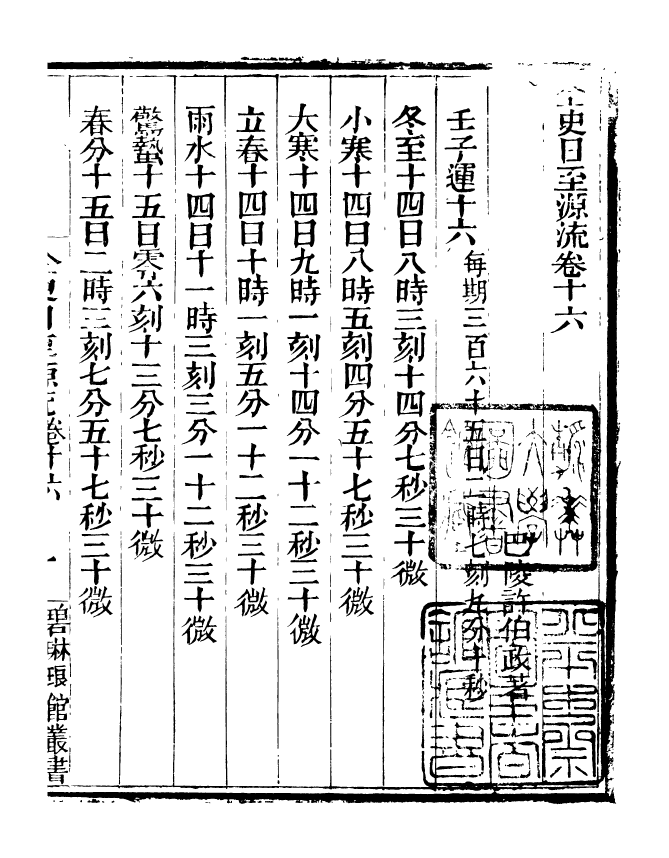 全史日至源流卷十六
巴陵許伯政著
壬子運十六 每期三百六十五日二時七刻九分十秒
冬至十四日八時三刻十四分七秒三十微
小寒十四日八時五刻四分五十七秒三十微
大寒十四日九時一刻十四分一十二秒三十微
立春十四日十時一刻五分一十二秒三十微
雨水十四日十一時三刻三分一十二秒三十微
驚蟄十五日零六刻十三分七秒三十微
春分十五日二時三刻七分五十七秒三十微
全史日至源流卷十六
一
碧琳琅館叢書